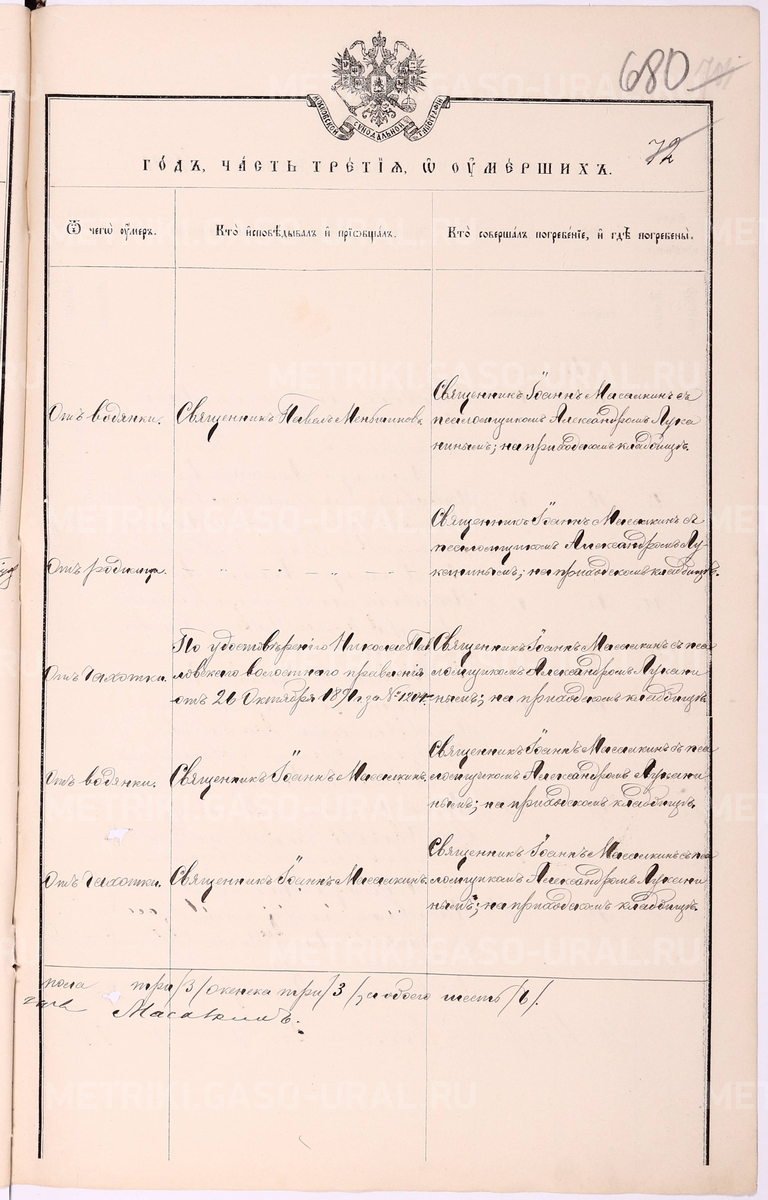 680
72
МОСКОВСКОЙ СУНОДАЛЬНОЙ ТИПОГРАФІИ
ГО́ДЪ, ЧА́СТЬ ТРЕ́ТІѦ, Ѡ҆ ОУ҆МЕ́РШИХЪ.
Ѿ чегѡ̀ оу҆́меръ.
Кто̀ и҆сповѣ́дывалъ и҆ прїѡбща́лъ.
Кто̀ соверша́лъ погребе́нїе, и҆ гдѣ̀ погребены̀.
Отъ водянки.
Священникъ Павелъ
Священникъ Іоаннъ Масалкинъ съ
псаломщикомъ Александромъ Лука
нинымъ; на приходскомъ кладбищѣ.
Отъ родимца.
Священникъ Іоаннъ Масалкинъ съ
псаломщикомъ Александромъ Лу-
канинымъ; на приходскомъ кладбищѣ.
Отъ чахотки.
По удостовѣренію Николае-Пав
ловскаго волостнаго правленія
отъ 26 Октября 1891 за №
Священникъ Іоаннъ Масалкинъ съ пса
ломщикомъ Александромъ Лукани
нымъ; на приходскомъ кладбищѣ.
Отъ водянки.
Священникъ Іоаннъ Масалкинъ.
Священникъ Іоаннъ Масалкинъ съ пса
ломщикомъ Александромъ Лукани
нымъ; на приходскомъ кладбищѣ.
Отъ чахотки.
Священникъ Іоаннъ Масалкинъ.
Священникъ Іоаннъ Масалкинъ съ пса
ломщикомъ Александромъ Лукани
нымъ; на приходскомъ кладбищѣ.
пола три /3/ женска три /3/, а обоего шесть /6/.
Масалкинъ.
METRIKI.GASO-URAL.RU